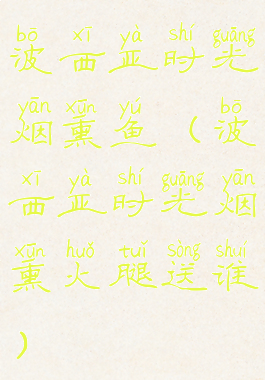 bō xī yà shí guāng
波西亚时光
yān xūn yú bō
烟熏鱼（波
xī yà shí guāng yān
西亚时光烟
xūn huǒ tuǐ sòng shuí
熏火腿送谁
）